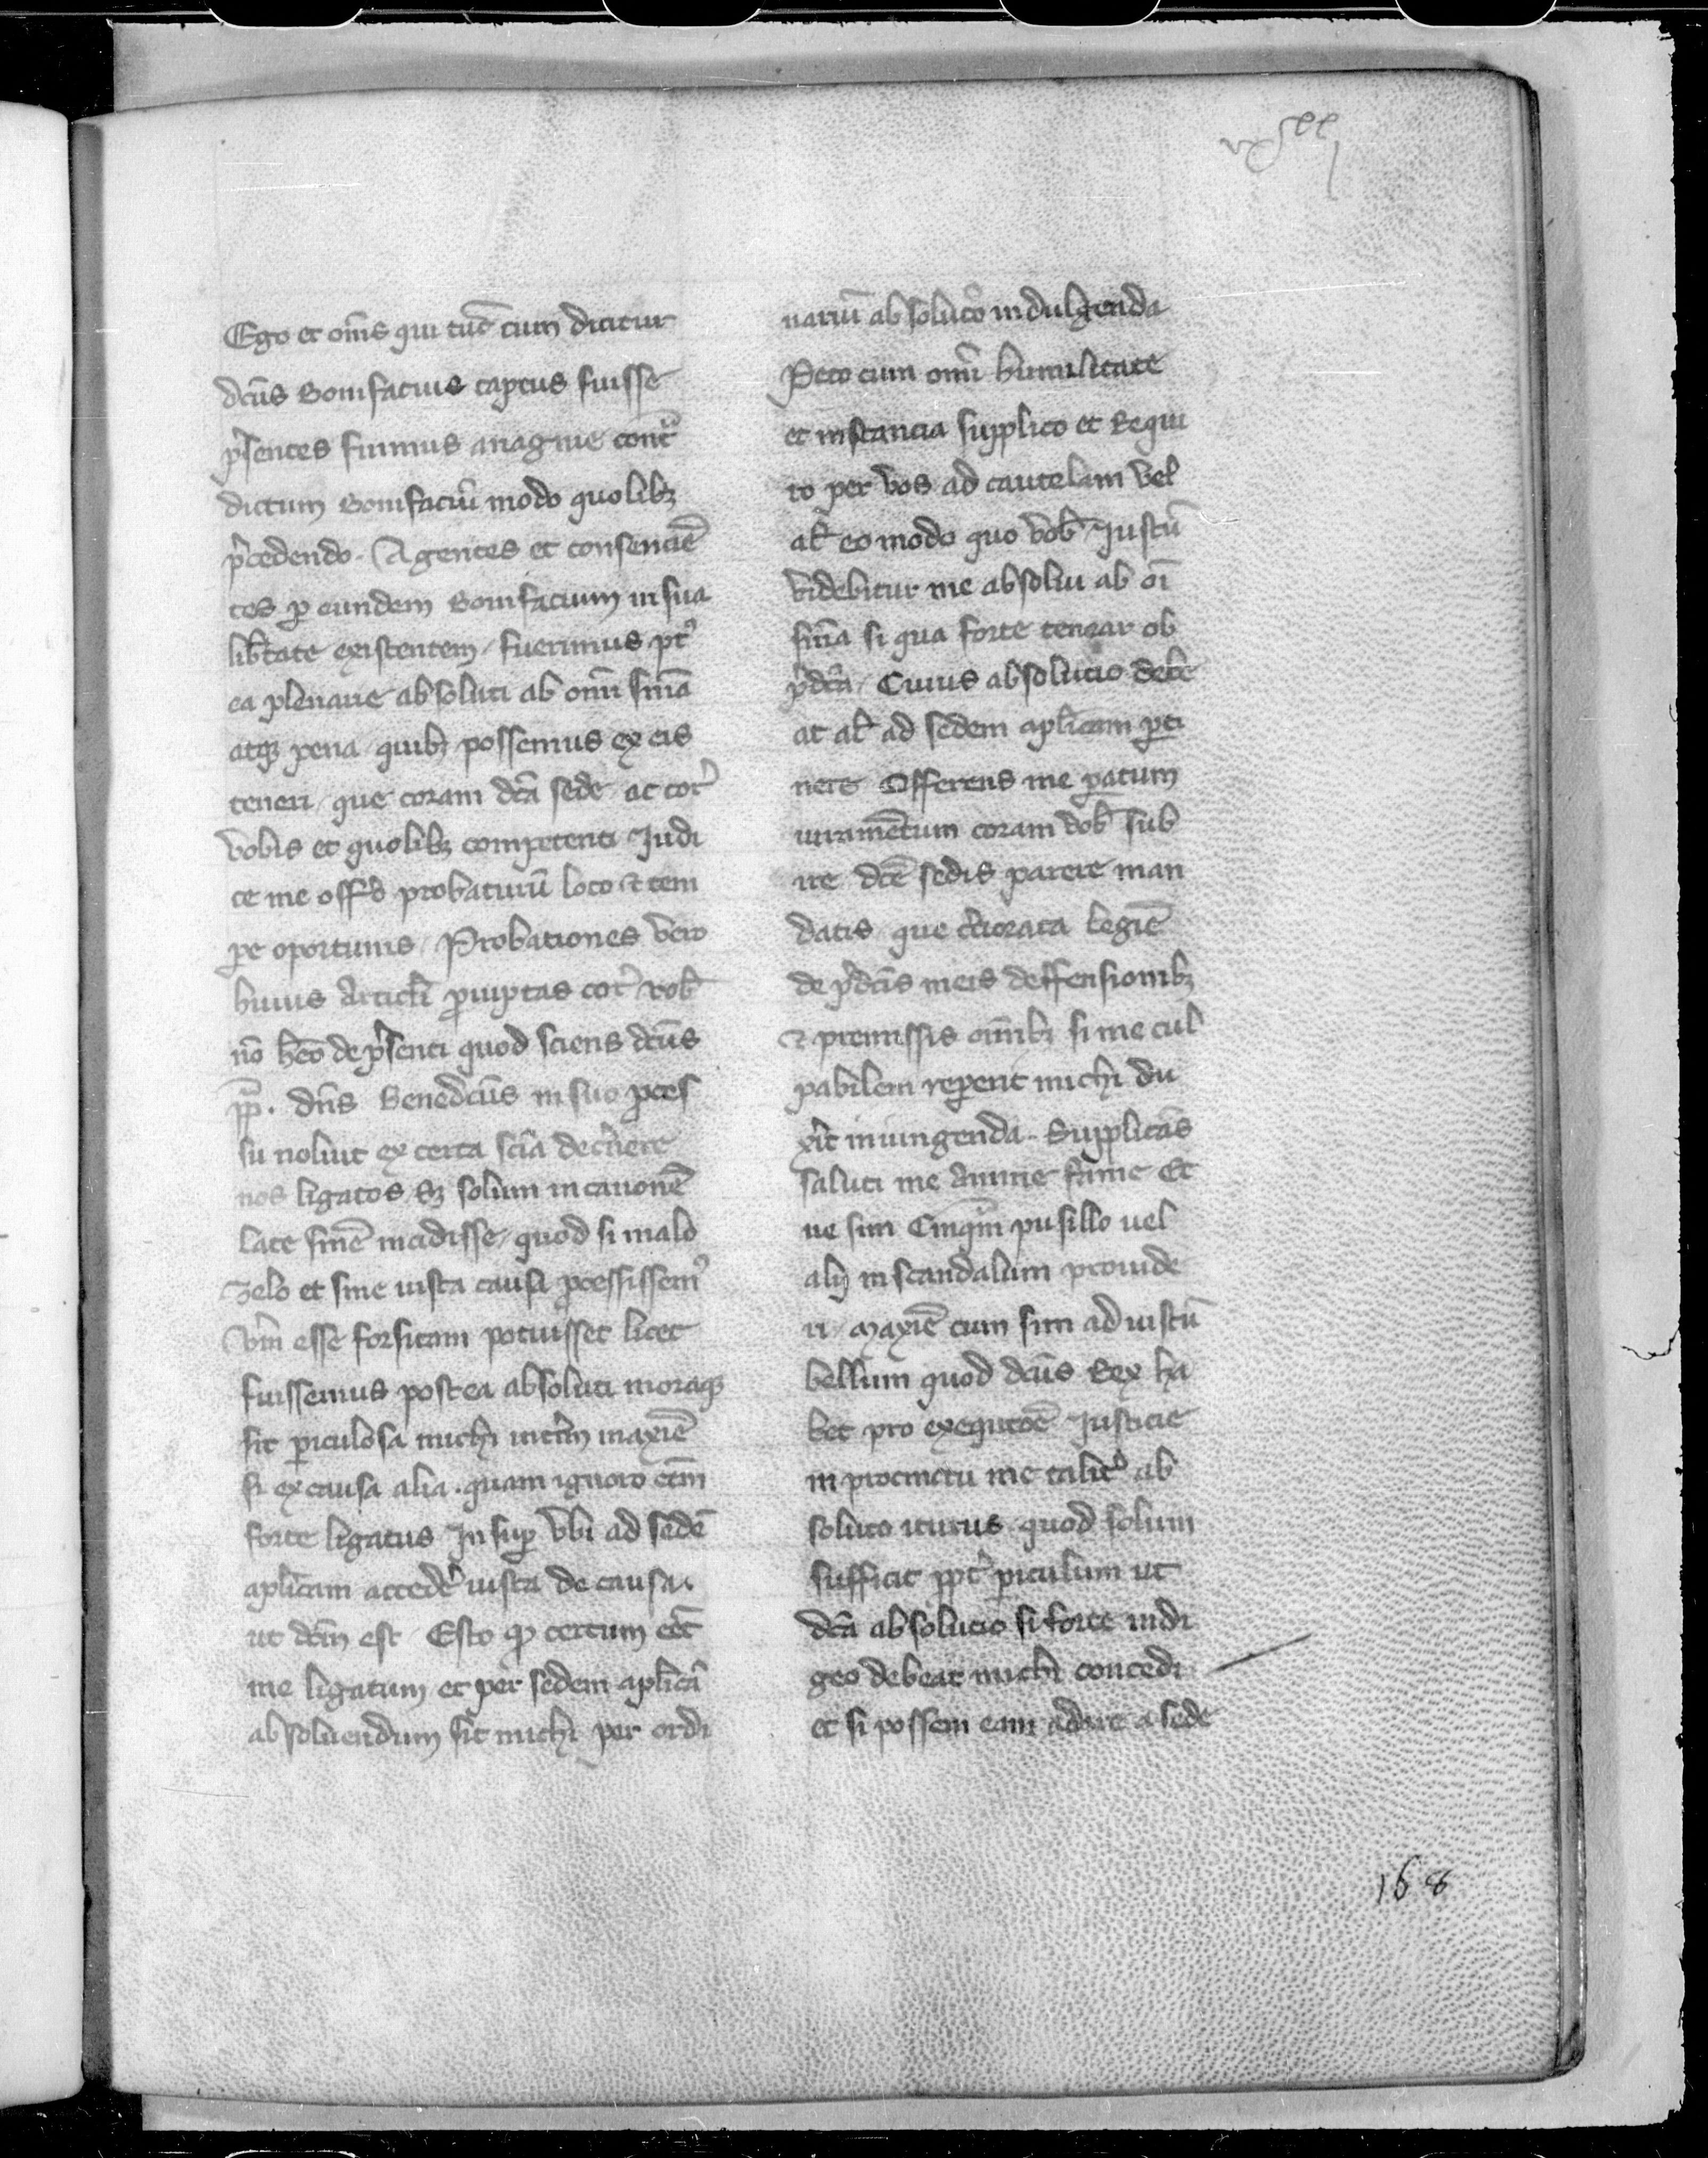 Ego et om̄s qui tūc cum dicitur
dc̄us Bonifacius captus fuisse
p̄sentes fuimus anagnie contᵃ
dictum Bonifaciū modo quolibꝫ
p̄cedendo. Agentes et consencīē
tes ꝑ eundem Bonifacium in sua
lib̄tate existentem / fuerimus ptꝰ
ea plenarie absoluti ab om̄i sm̄a
atqꝫ pena / quibꝫ possemus ex eis
teneri / que coram dc̄a sede ac cor̄
vobis et quolibꝫ competenti Judi
ce me offero probaturū loco ⁊ tem
pe oportunis / Probationes vero
huius Articl̄i p̄mptas cor̄ vob̄
nō h̄eo de p̄senti quod sciens dc̄us
pp̄. dn̄s Benedc̄us in suo ꝓces
su noluit ex certa scīa dec̄nere
nos ligatos sꝫ solum in canonē
late sm̄ē incidisse / quod si malo
Zelo et sine iusta causa ꝓcessissemꝰ
vm̄ esse forsitam potuisset licet
fuissemus postea absoluti moraqꝫ
sit ꝑiculosa michi int̄im maxīē
si ex causa alia . quam ignoro eēm
forte ligatus Insuꝑ vbi ad sedē
apl̄icam acced̄e iusta de causa
ut dc̄m est / Esto ꝙ certum eēt
me ligatum et per sedem apl̄icā
absoluendum sit michi per ordi
nariū absolucō indulgenda
Peto cum om̄i humilitate
et instancia supplico et Requi
ro per vos ad cautelam vel
al̄r eo modo quo vob̄ Justū
videbitur me absolui ab oī
sm̄a si qua forte tenear ob
p̄dc̄a / Cuius absolucio debe
at al̄r ad sedem apl̄icam ꝑti
nere Offerens me ꝑatum
iuramētum coram vob̄ sub
ire dc̄e sedis parere man
datis / que dec̄iorata legīē
de p̄dc̄is meis deffensionibꝫ
⁊ premissis om̄ibꝫ si me cul
pabilem reperit michi du
xit iniungenda . Supplicās
saluti me Anime fame Et
ne sim Cuiqm̄ pusillo uel
alij in scandalum prouide
ri / maxīē cum sim ad iustū
bellum quod dc̄us Rex ha
bet pro exequcōē Justicie
in procinctu me talit̄ ab
soluto iturus / quod solum
sufficit ꝓpt̄ ꝑiculum ut
dc̄a absolucio si forte indi
geo debeat michi concedi
et si possem eam adire a sede
168